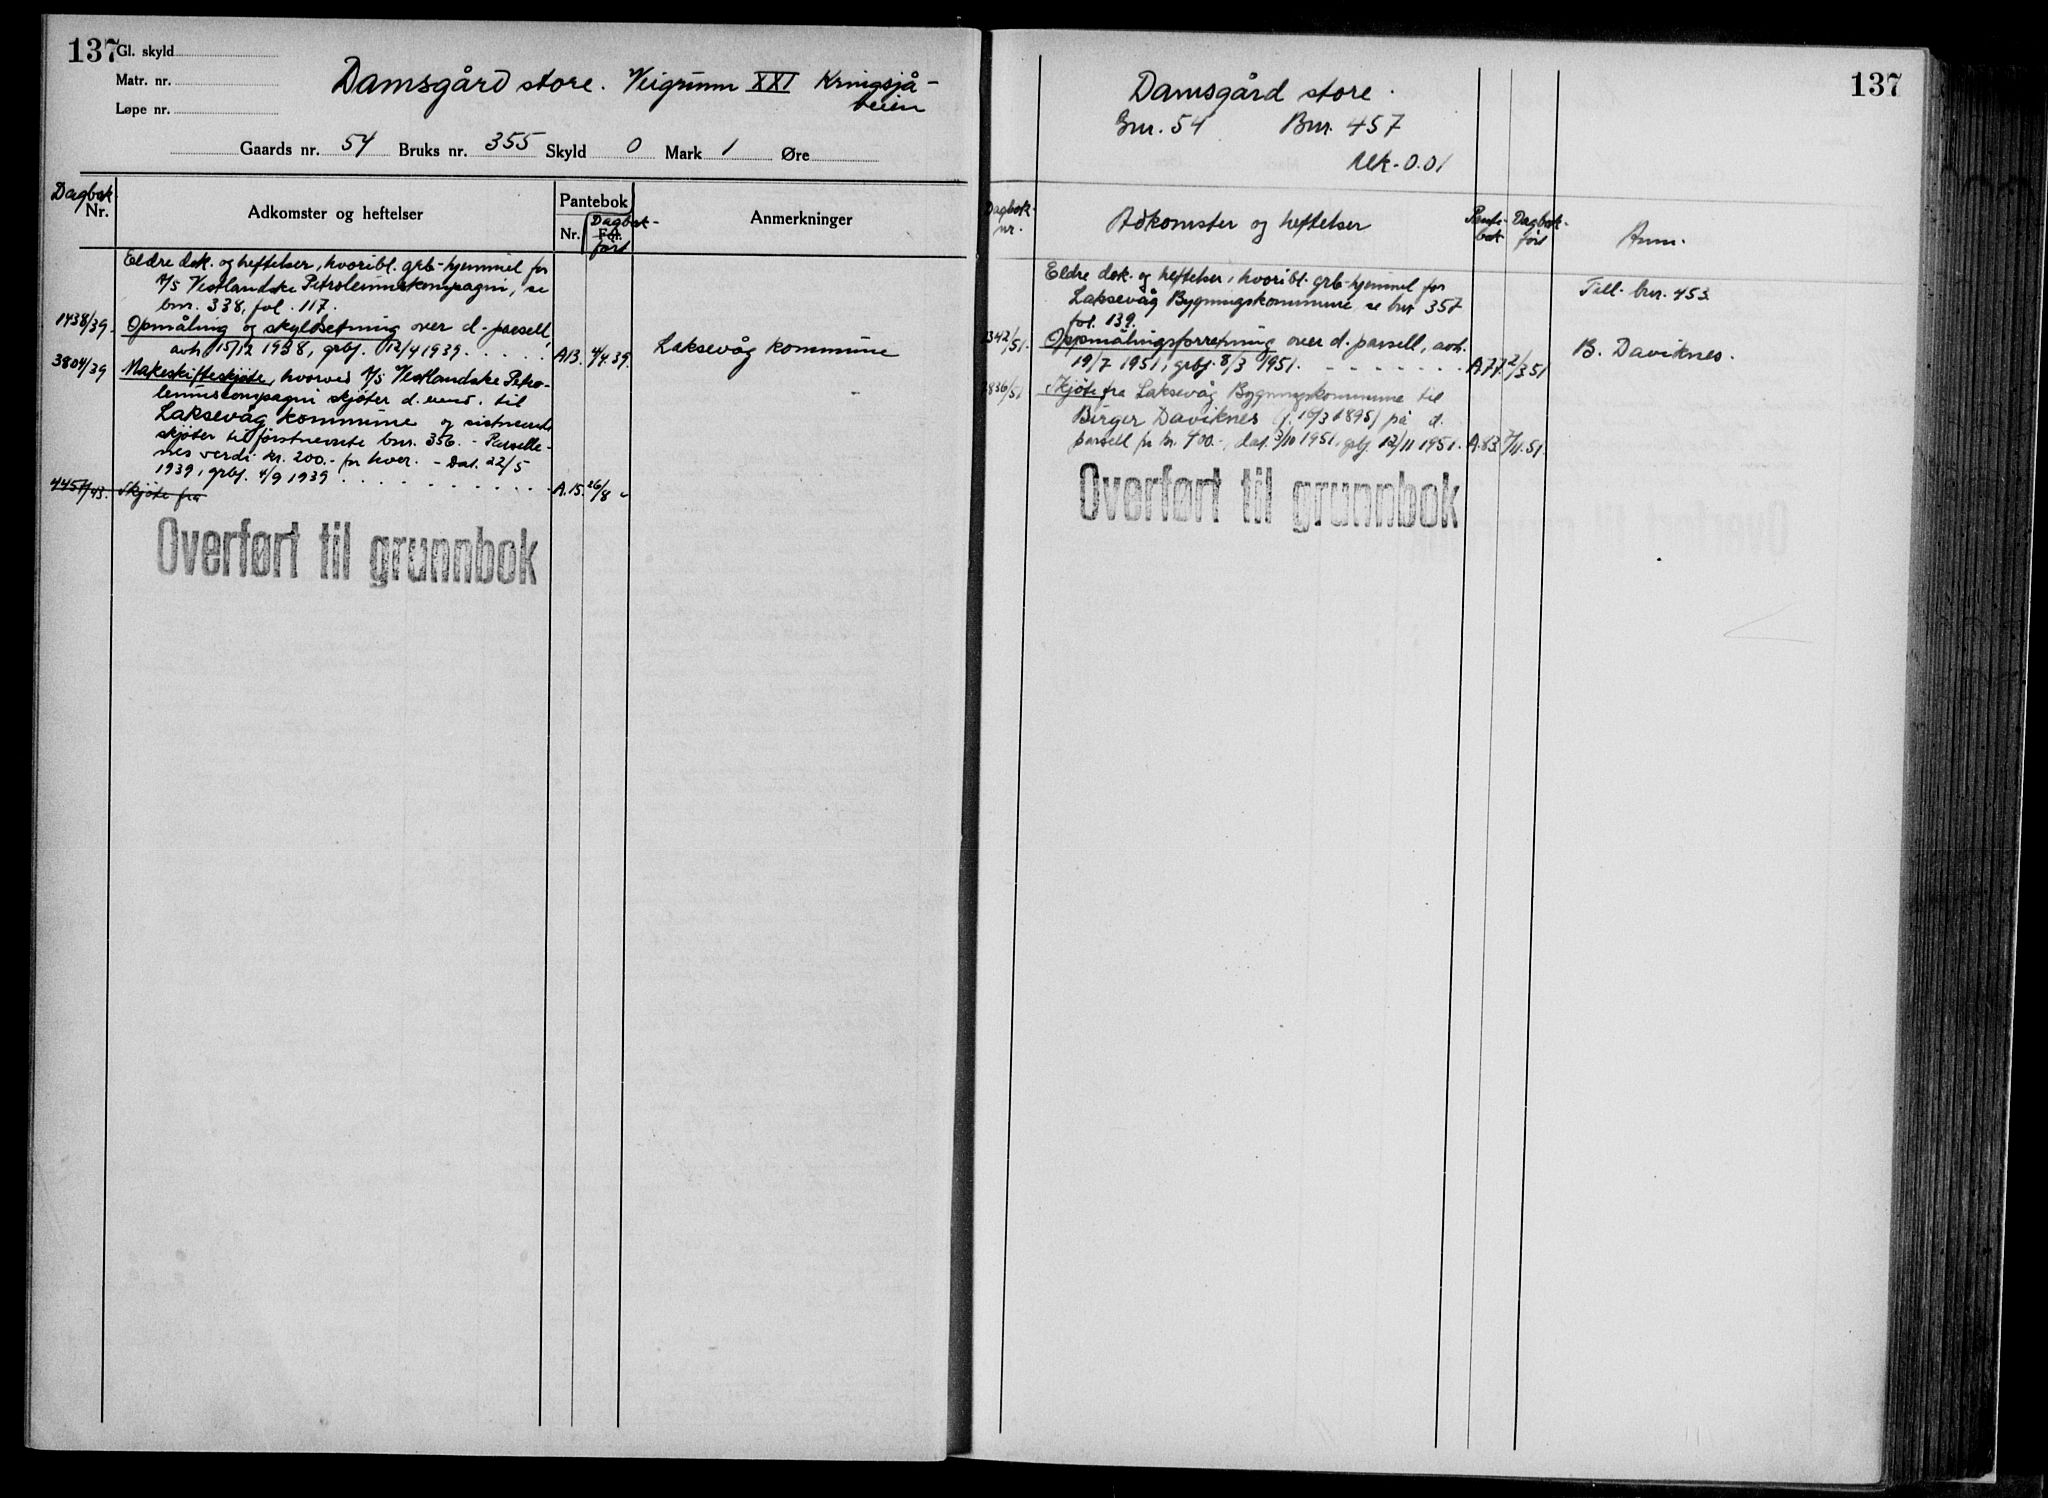 137
Gl. skyld
Matr. nr.
Løpe nr.
Damsgård store. Veigrunn XXI Kringsjå-
veien
Gaards nr. 54 Bruks nr. 355 Skyld 0 Mark 1 Øre
Dagbok
Nr.
Adkomster og heftelser
Pantebok
Nr. Fol. Dagbok-
ført
Anmerkninger
Eldre dok. og heftelser, hvoribl. grb-hjemmel for
A/S Vestlandske Petroleumskompagni, se
bnr. 338, fol. 117.
1438/39. Opmåling og skyldsetning over d. parsell,
avh. 15/12 1938, grbf. 12/4 1939. A13. 4/4 39. Laksevåg kommune
3804/39 Makeskifteskjøte, hvorved A/S Vestlandske Petro-
leumskompagni skjøter d. eiend. til
Laksevåg kommune og sistnevnte
skjøter til førstnevnte bnr. 356. - Parselle-
nes verdi kr. 200.- for hver. - Dat. 22/5
1939, grbf. 4/9 1939 A.15. 26/8 "
4457/43. Skjøte fra
Overført til grunnbok
137
Damsgård store.
Gnr. 54 Bnr. 457
Mk. 0.01
Dagbok-
nr.
Adkomster og heftelser
Pante-
bok
Dagbok-
ført
Anm.
Eldre dok. og heftelser, hvoribl. grb-hjemmel for
Laksevåg Bygningskommune se bnr 357
fol. 139.
Till. bnr. 453.
1342/51. Oppmålingsforretning over d. parsell, avh.
19/7 1951, grbf. 8/3 1951. A.77. 2/3.51 B. Daviknes.
Skjøte fra Laksevåg Bygningskommune til
Birger Daviknes (f. 16/3 1895) på d.
parsell for kr. 400.-, dat. 3/10 1951, grbf. 12/11 1951. A.83. 7/11.51.
Overført til grunnbok